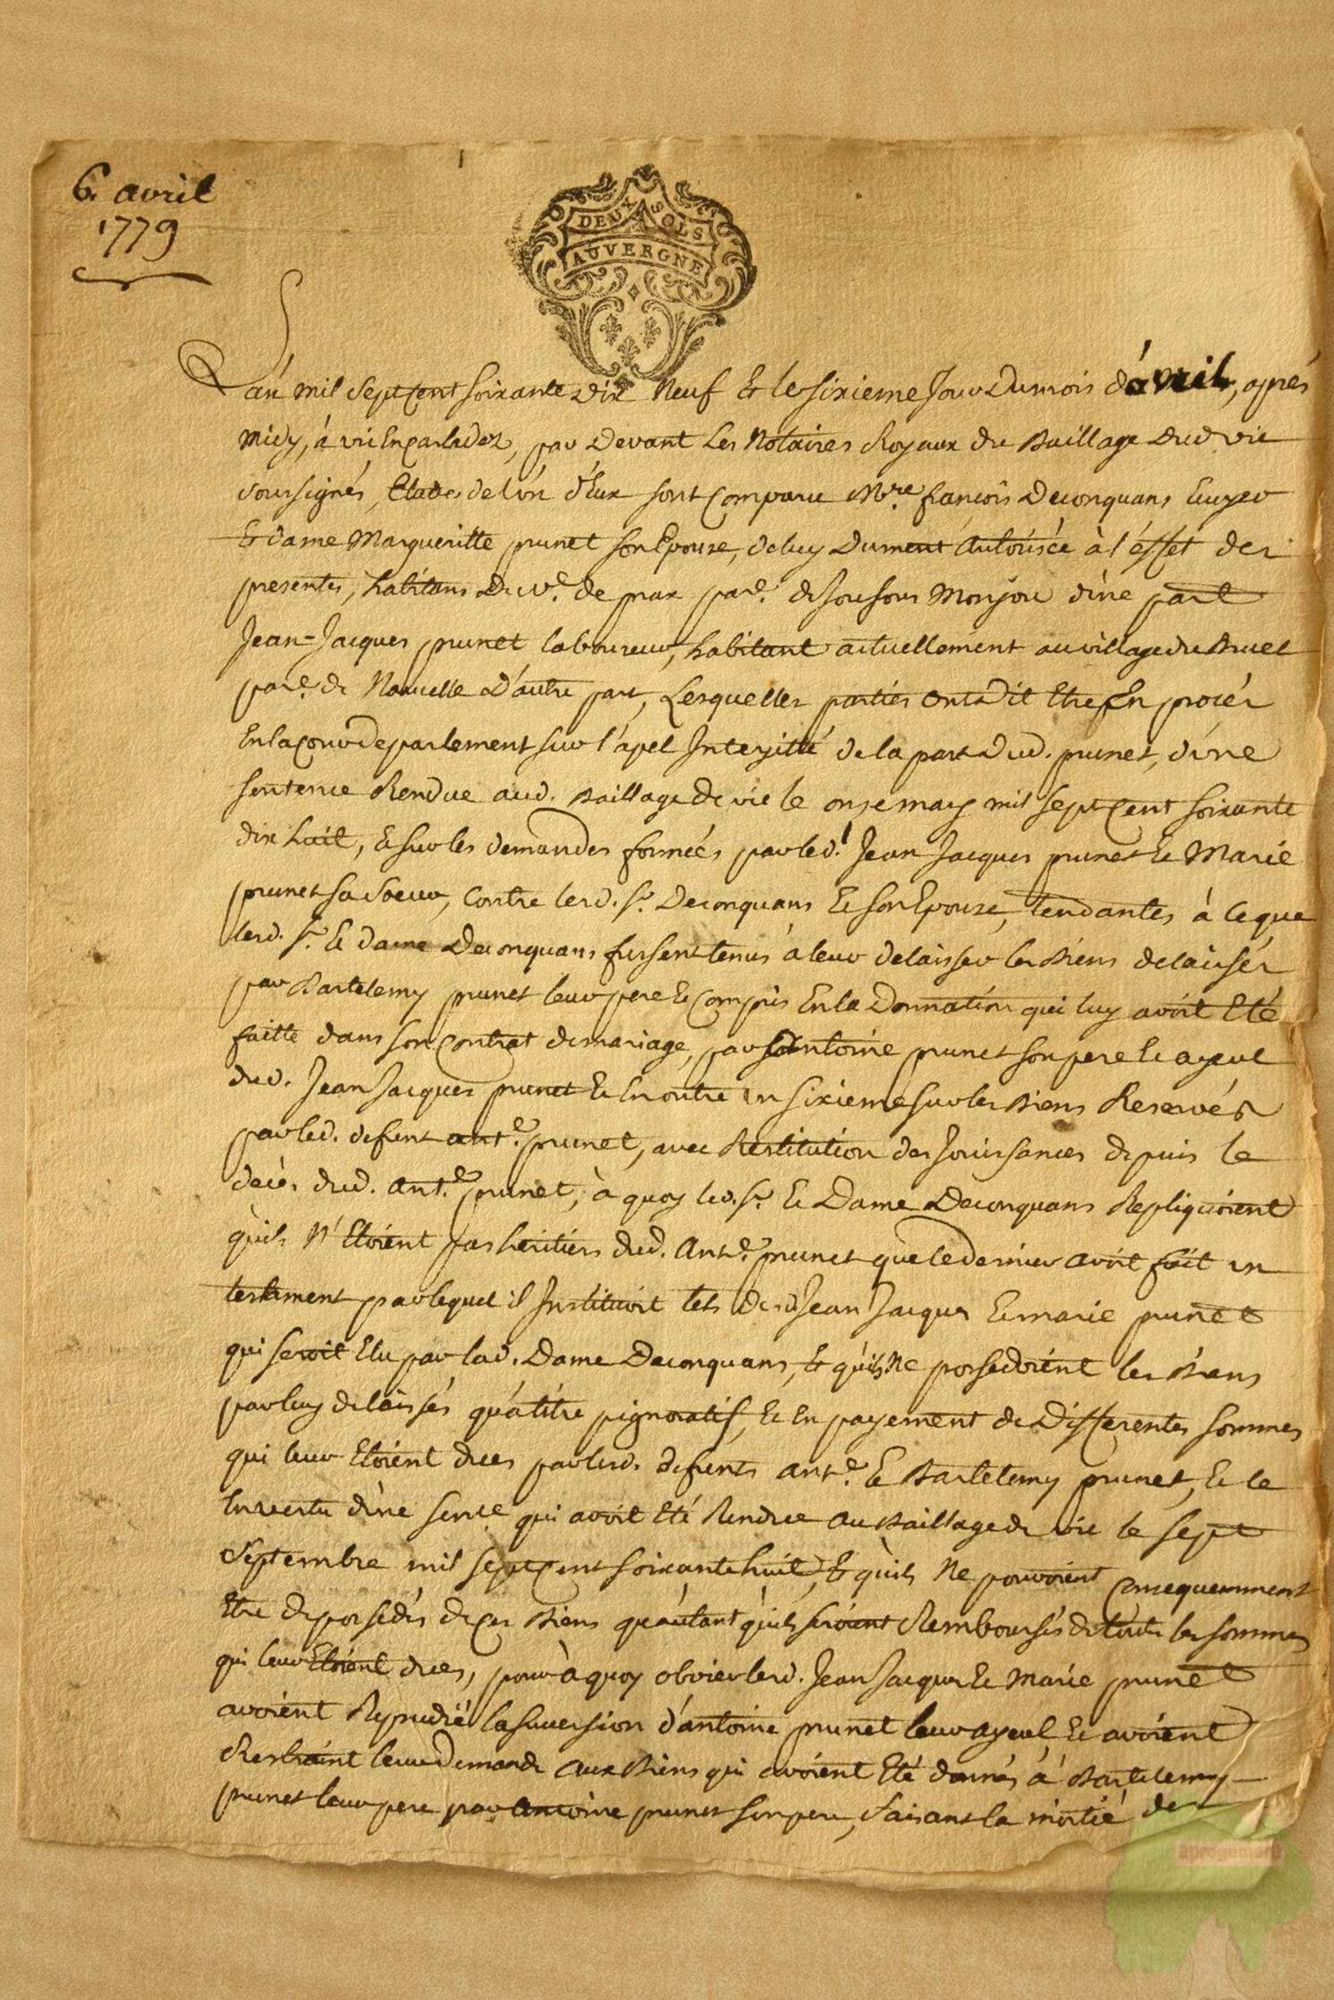 6. avril
1779
DEUX SOLS
AUVERGNE
L'an mil sept cent soixante dix Neuf Et le sixieme Jour Dumois d'avril, aprés
midy, à vic En carladez, par Devant Les Notaires Royaux du Baillage Dud vic
soussignés, Et de l'un d'Eux sont comparu Mre françois Deconquans Ecuyer
Et dame Margueritte prunet son Epouze, de luy Dument Autorisée à l'éffet des
presentes, habitans Du v.e de prax par.e de Jou sous Monjou d'une part
Jean-Jacques prunet laboureur, habitant actuellement au village du Bruel
par.e de Naucelle d'autre part, Lesquelles parties ont dit Etre En procés
En la cour de parlement sur l'apel Interjetté de la part Dud. prunet, d'une
sentence Rendue aud. Baillage de vic le onze mars mil sept cent soixante
dix huit, Et sur les demandes formées par led. Jean Jacques prunet Et Marie
prunet sa soeur, contre lesd. Sr. Deconquans Et son Epouze, tendantes à ce que
lesd. Sr. Et dame Deconquans fussent tenus à leur delaisser les Biens delaissés
par Bartelemy prunet leur pere Et compris En la Donnation qui luy avoit Eté
faitte dans son contrat de mariage, par Antoine prunet son pere Et ayeul
dud. Jean Jacques prunet Et En outre un sixieme sur les Biens Reservés
par led. defunt ant.e prunet, avec Restitution des Jouissances depuis le
decés dud. Ant.e prunet, à quoy led. Sr. Et Dame Deconquans Repliquoient
qu'ils N'Etoient pas heritiers dud. Ant.e prunet que le dernier avoit fait un
testament par lequel il Instituoit led. Jean Jacques Et marie prunet
qui seroit Elu par lad. Dame Deconquans, Et qu'ils Ne possedoient les Biens
par luy delaissés qu'à titre pignoratif, Et En payement de Differentes sommes
qui leur Etoient dues par lesd. defunts ant.e Et Bartelemy prunet, Et ce
En vertu d'une sence qui avoit Eté Rendue au Baillage de vic le sept
Septembre mil sept cent soixante huit, Et qu'ils Ne pouvoient consequemment
Etre depossedés de ces Biens qu'autant qu'ils seroient Remboursés de toutes les sommes
qui leur Etoient dues, pour à quoy obvier lesd. Jean Jacques Et Marie prunet
avoient Repudié la succession d'antoine prunet leur ayeul Et avoient
Restraint leur Demande aux Biens qui avoient Eté donnés à Bartelemy
prunet leur pere par Antoine prunet son pere, faisant la moitié des
aprogemere